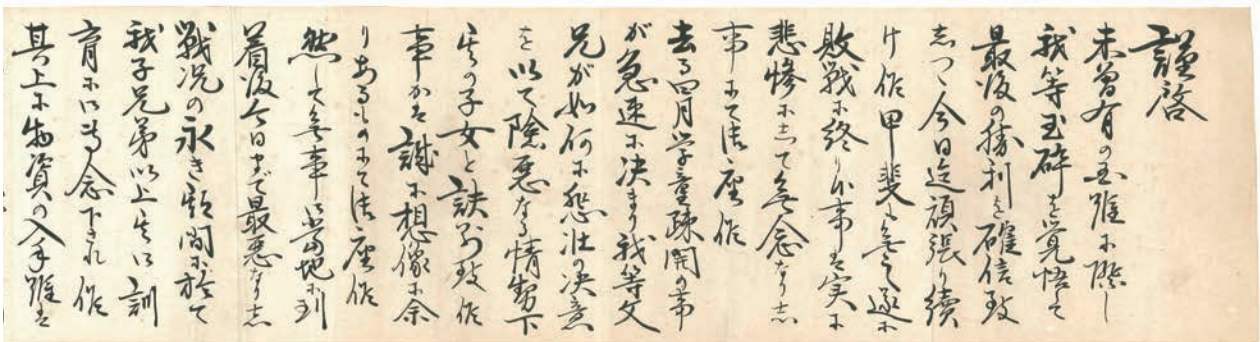 謹啓
未曽有の国難に際し
我等玉砕を覚悟して
最後の勝利を確信致
志つゝ今日迄頑張り続
け候甲斐も無之遂に
敗戦に終り候事は実に
悲惨にして無念なりし
事にて御座候
去る四月学童疎開の事
が急速に決まり我等父
兄が如何に悲壮の決意
を以て険悪なる情勢下
其の子女と訣別致候
事かは誠に想像に余
りあるものにて御座候
然して無事御当地に到
着後今日まで最悪なりし
戦況の永き期間に於て
我子兄弟以上其に訓
育に御専念下され候
其上に物資の入手難は